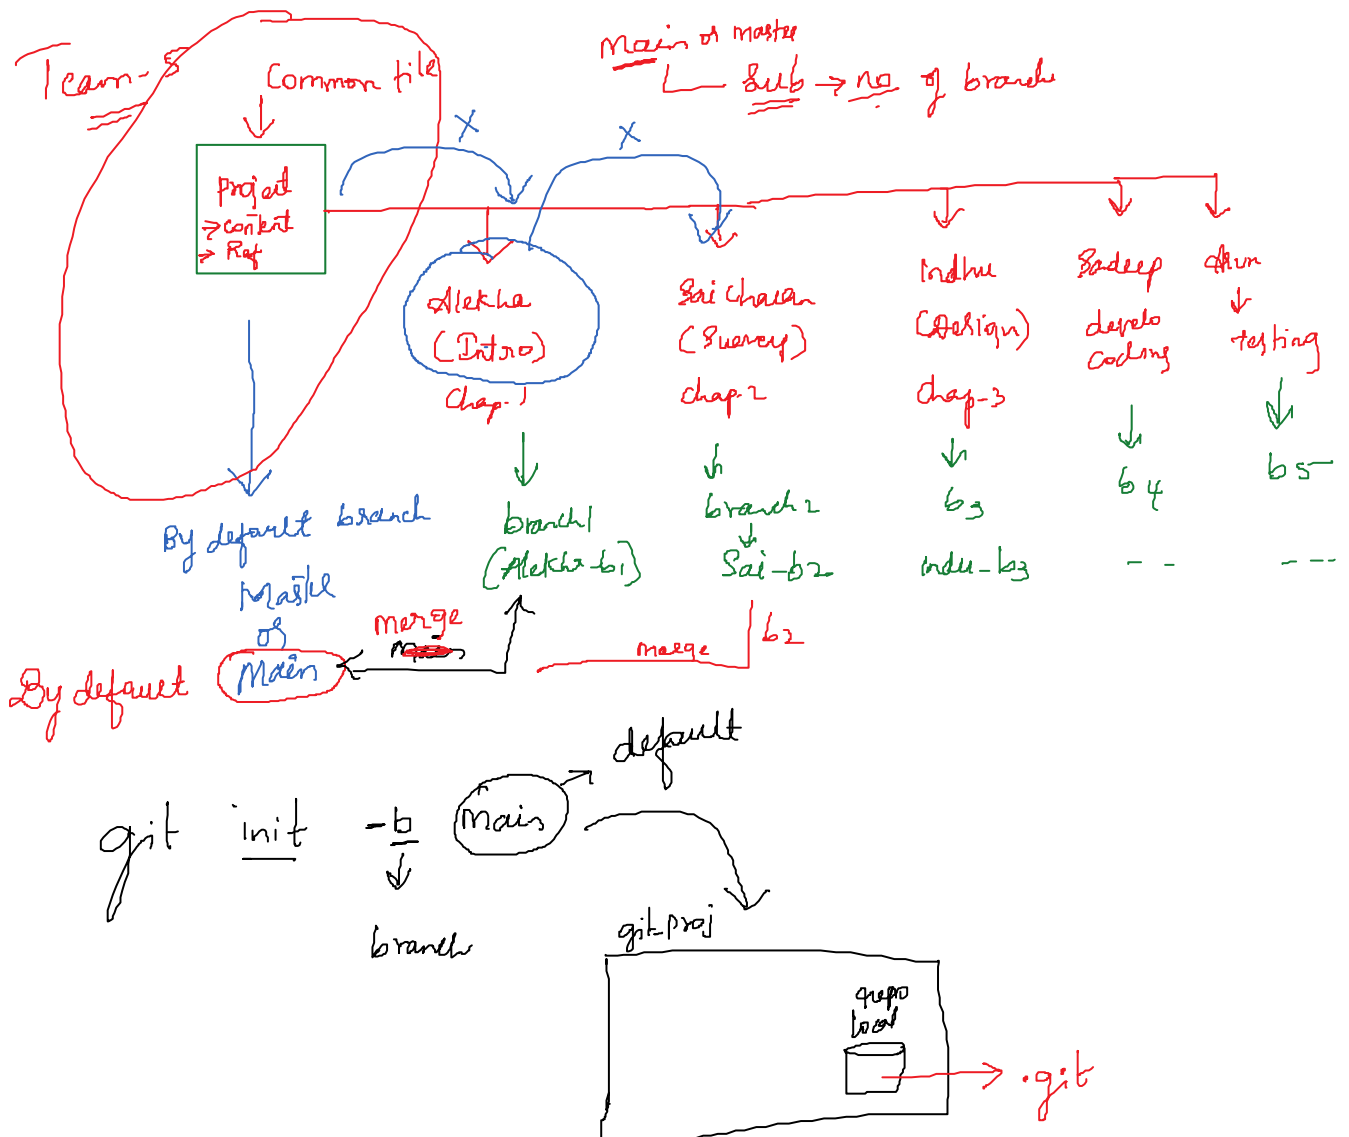 Team-5
Common file
Main or master
Sub → no of branch
project
→ content
→ Ref
X
X
Alekha
(Intro)
Chap-1
Sai Charan
(Survey)
chap-2
Indhu
(Design)
Chap-3
Sadeep
develo
coding
Arun
testing
By default branch
Master
or
Main
By default
branch1
(Alekha-b1)
branch2
Sai-b2
b3
indu-b3
b4
- -
b5
- - -
merge
merge
b2
default
git init -b main
branch
git-proj
repo
local
.git